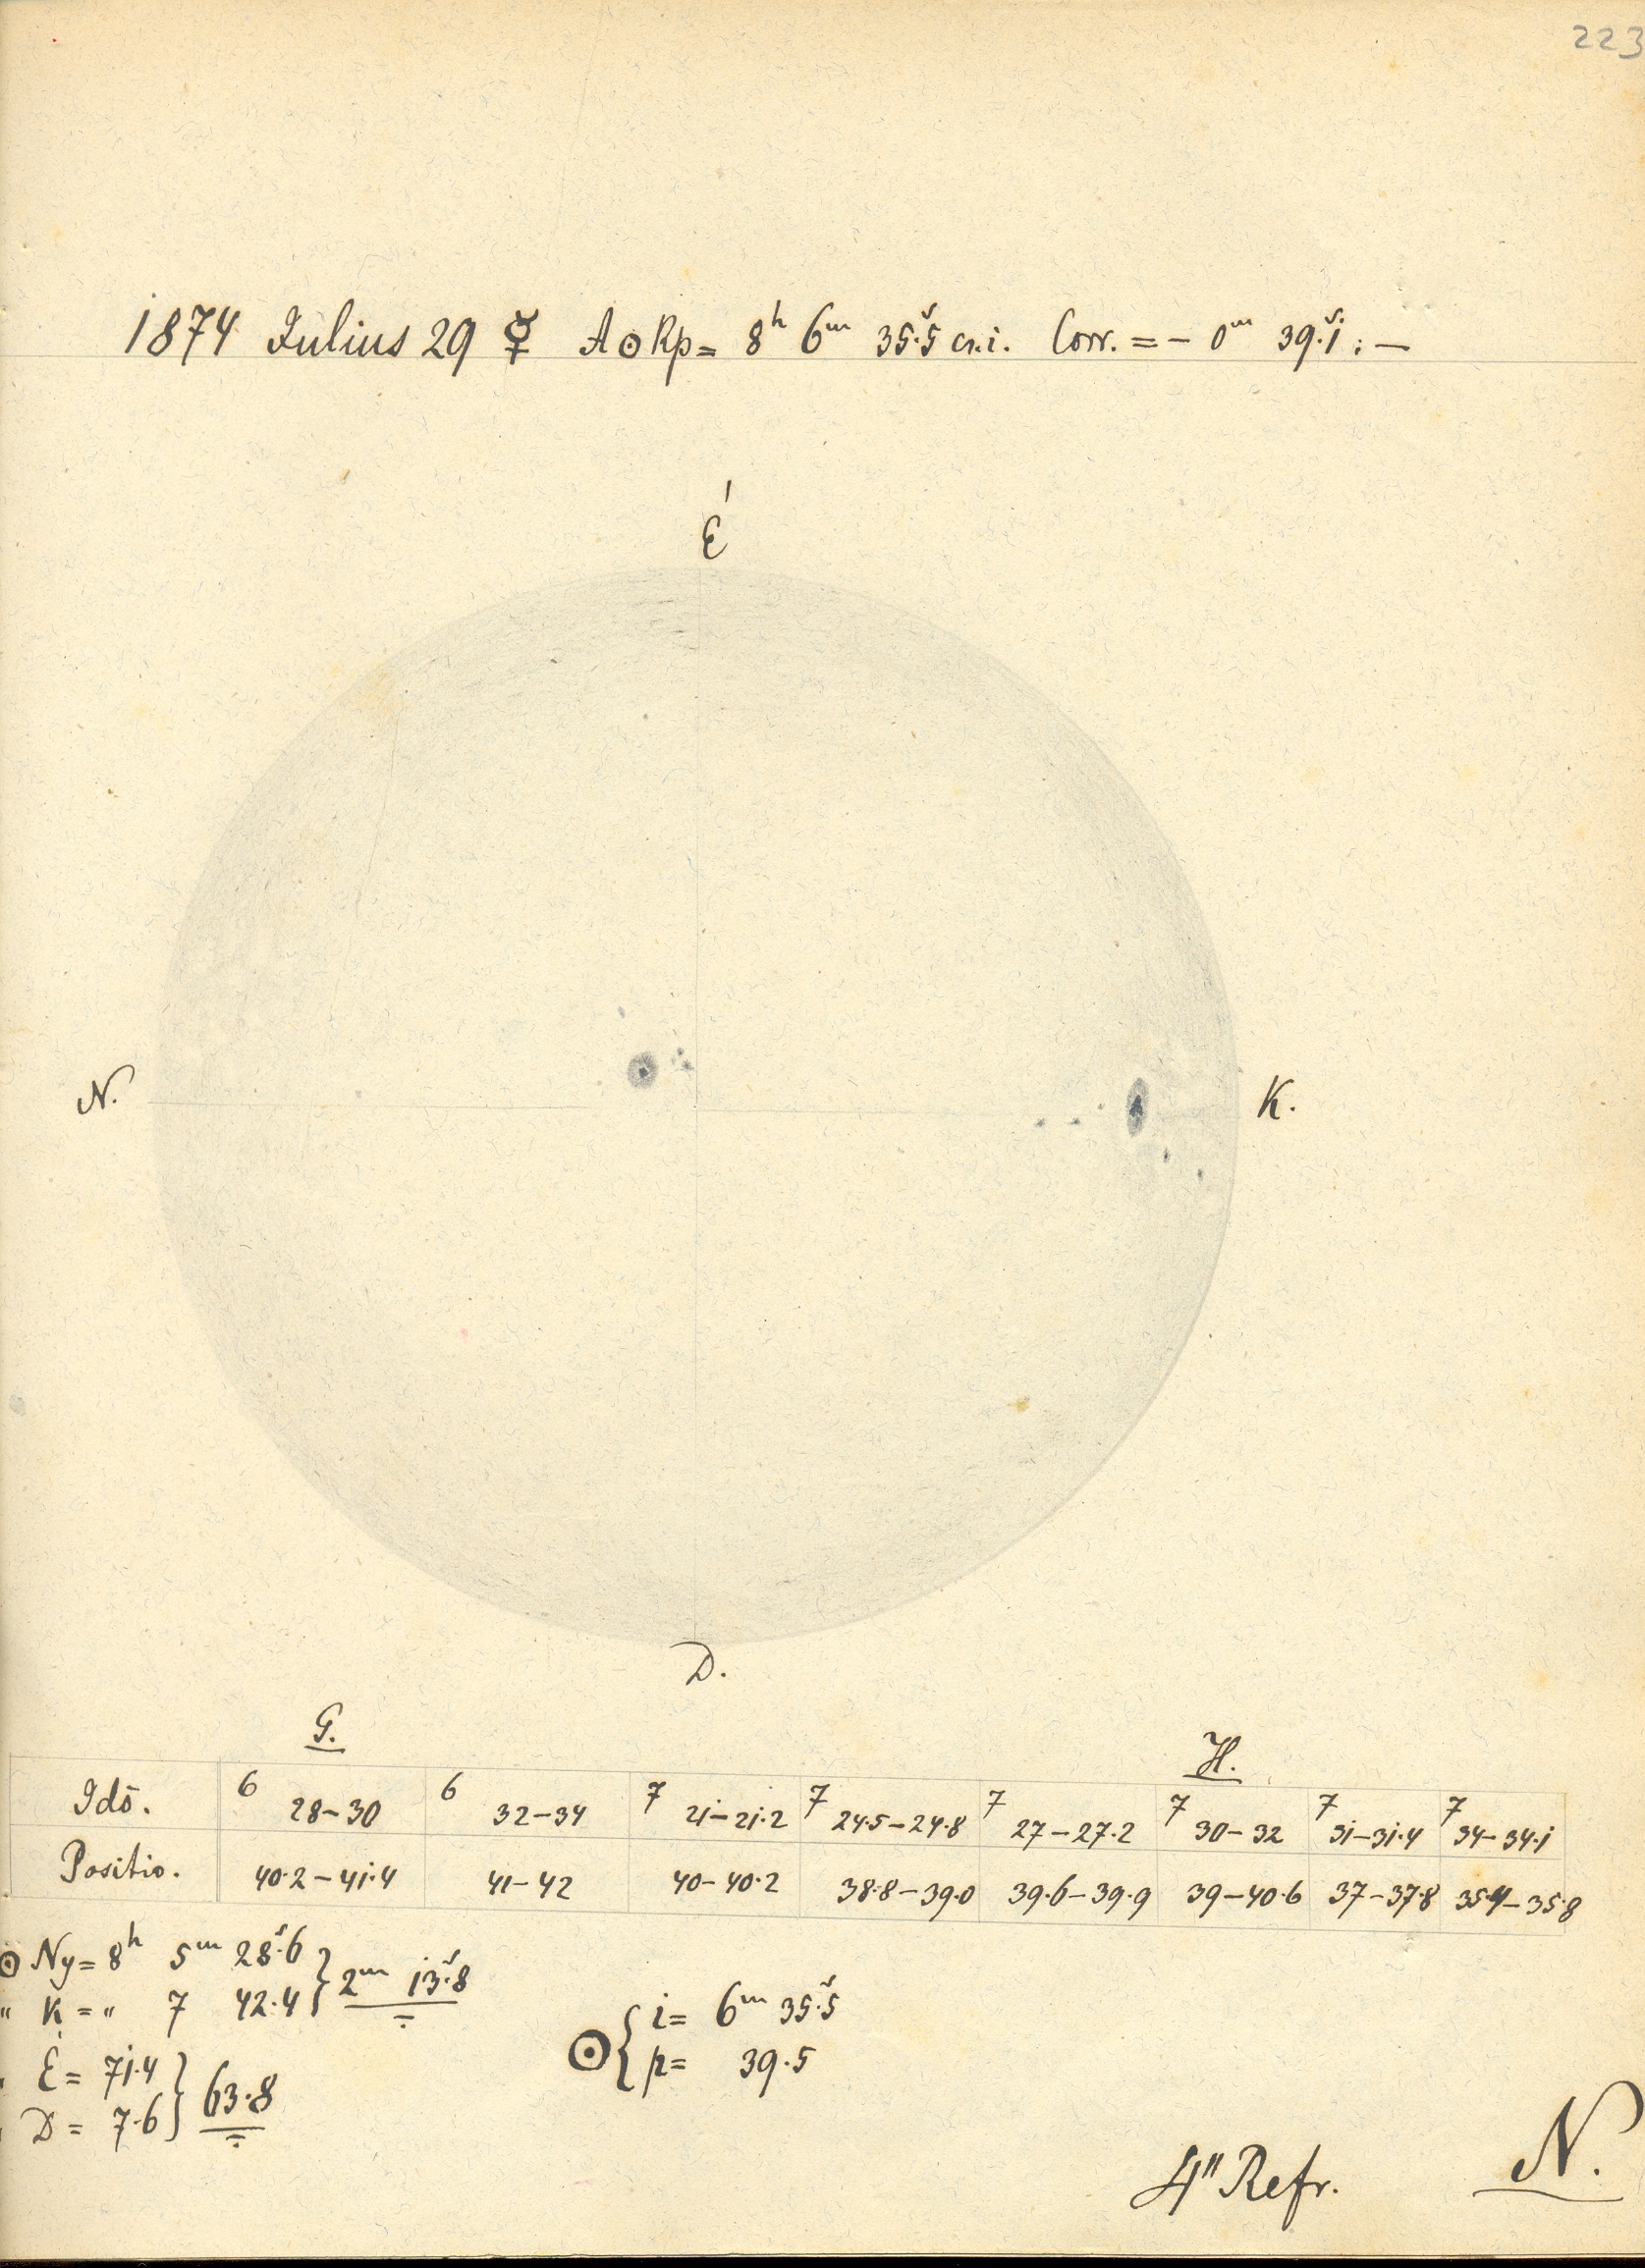 223
1874 Julius 29 ☿ A ⊙ Kp = 8h 6m 35.s5 cs.i. Corr. = - 0m 39.s1 : —
É
N. K.
D.
G. H.
Idő. 6 28-30 6 32-34 7 21-21.2 7 24.5-24.8 7 27-27.2 7 30-32 7 31-31.4 7 34-34.1
Positio. 40.2-41.4 41-42 40-40.2 38.8-39.0 39.6-39.9 39-40.6 37-37.8 35.4-35.8
⊙ Ny = 8h 5m 28.s6 } 2m 13.s8
" K = " 7 42.4
⊙ { i = 6m 35.s5
p = 39.5
É = 71.4 } 63.8
D = 7.6
4" Refr. N.